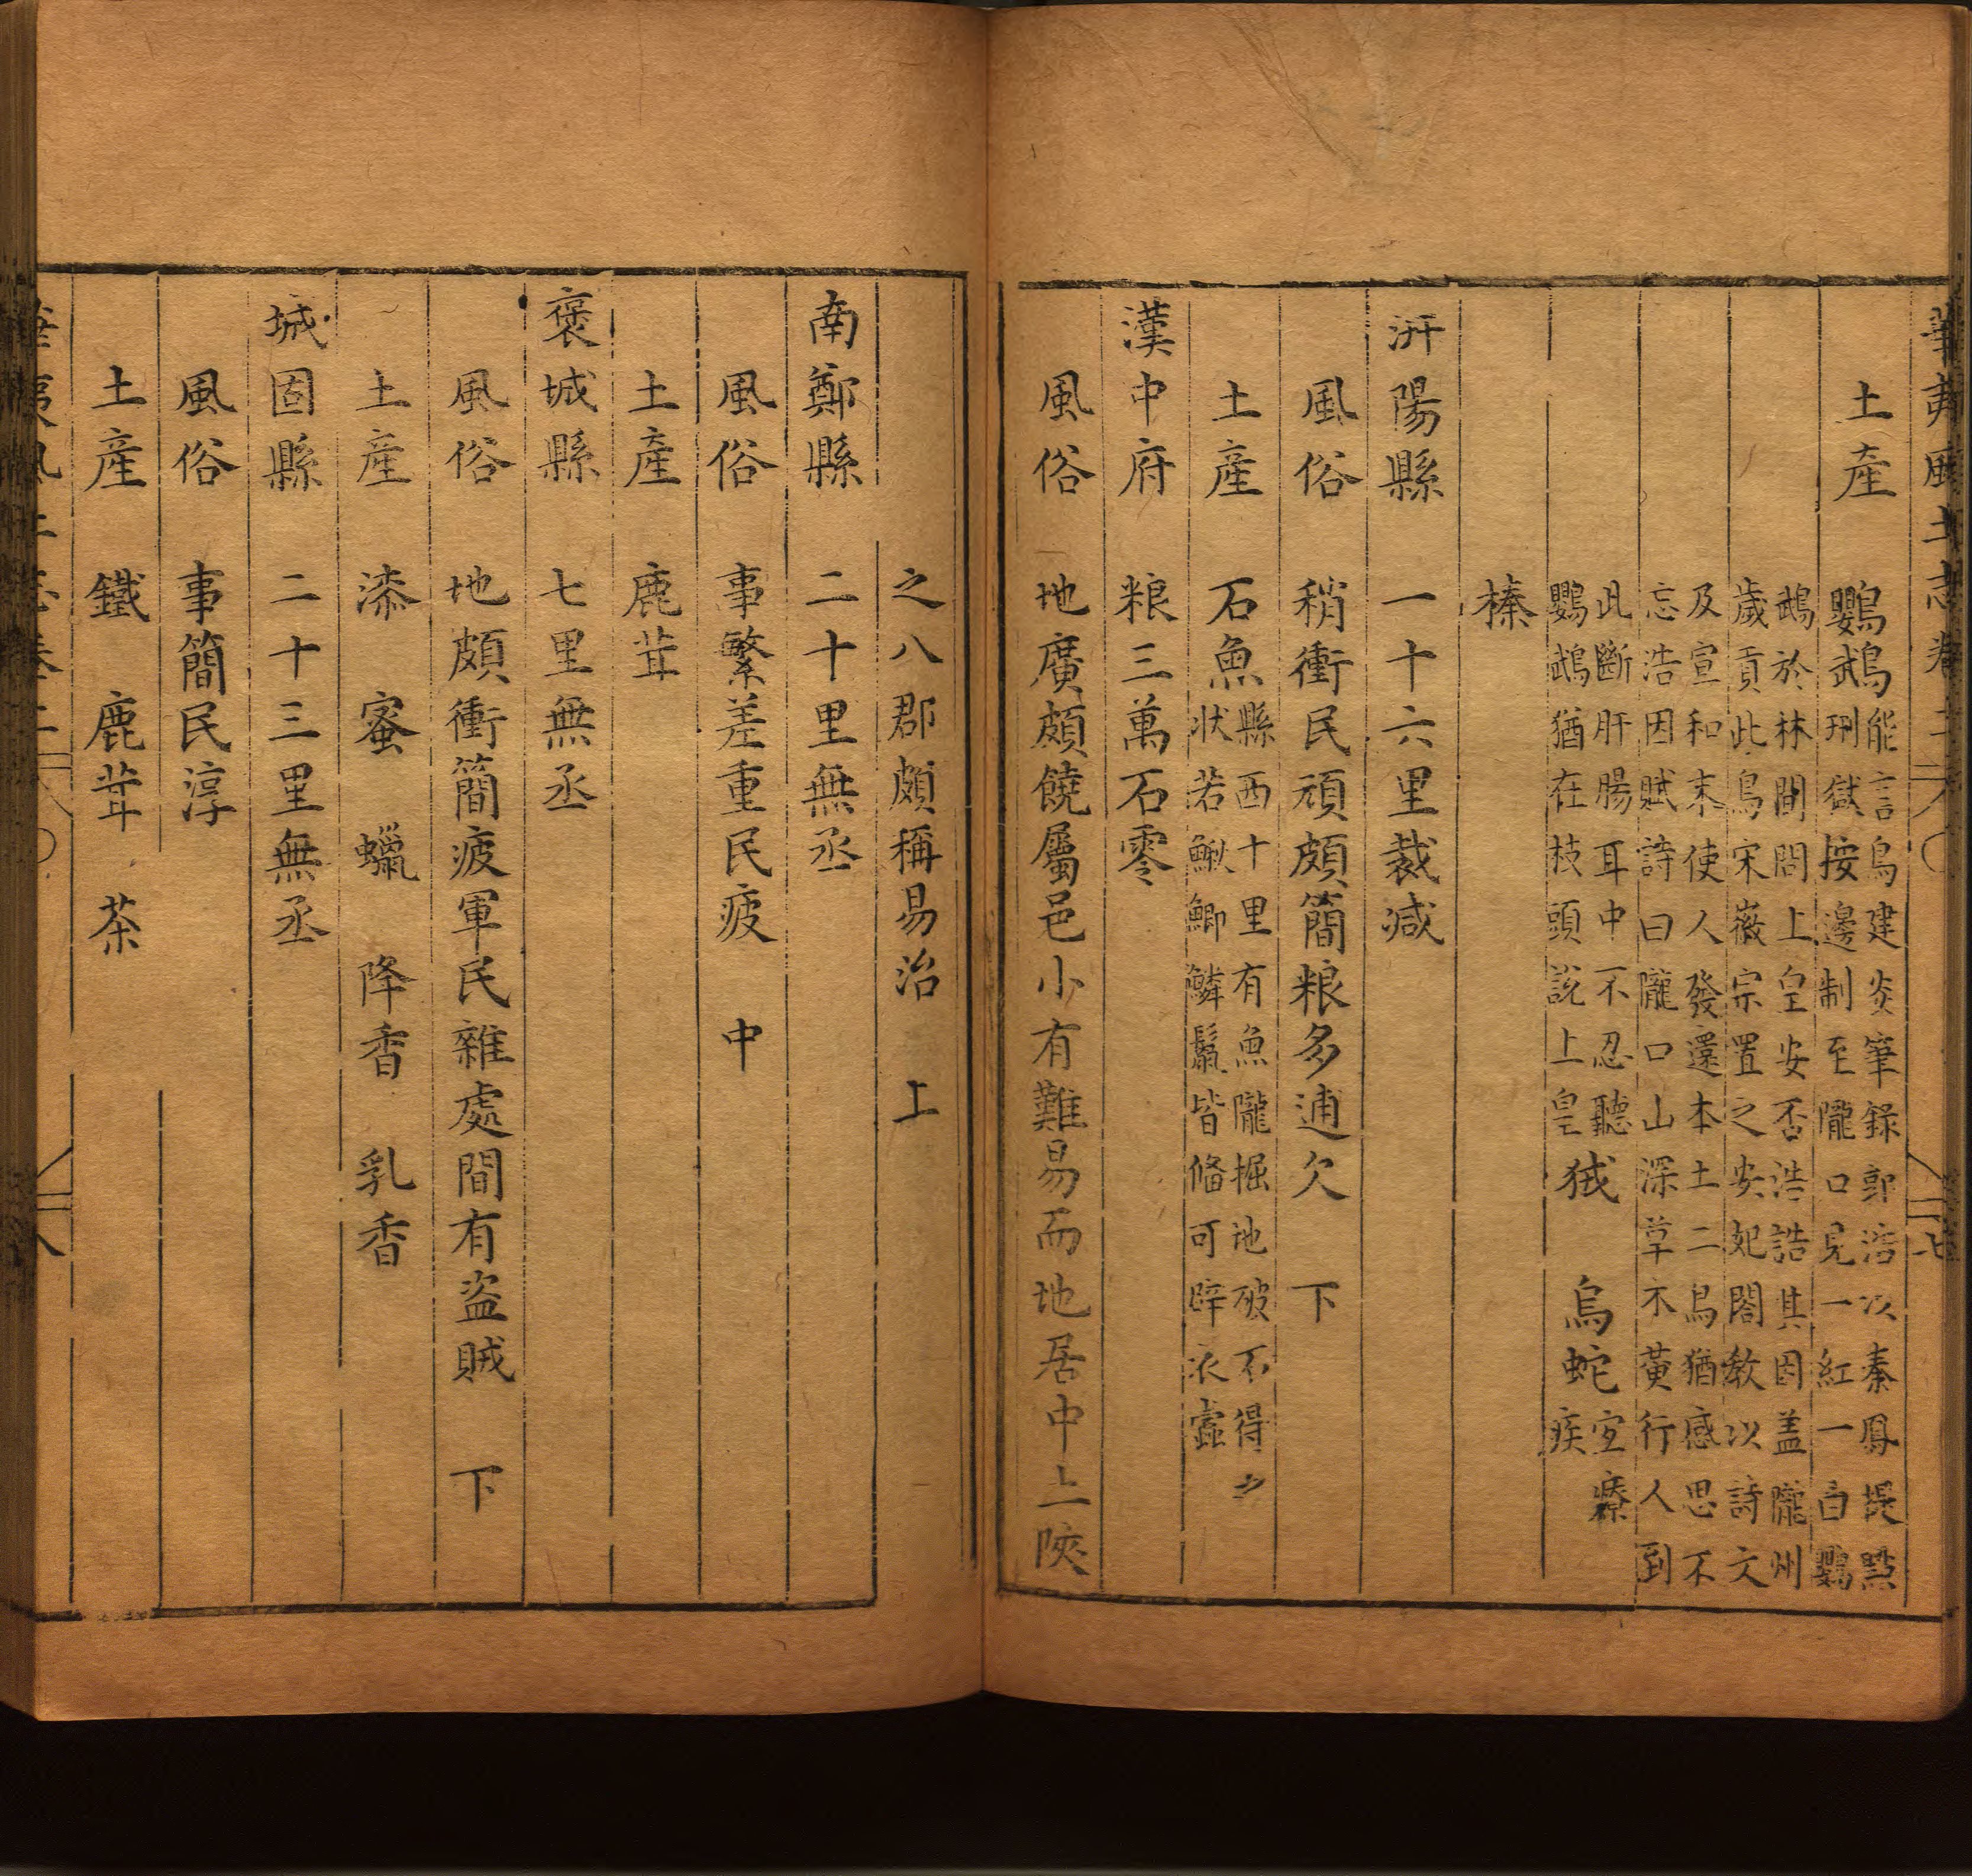 華夷風土志卷二
土產 鸚鵡 能言鳥建炎筆録郭浩以秦鳳提㸃
刑獄按邊制至隴口見一紅一白鸚
鵡於林間問上皇安否浩詰其因盖隴州
歲貢此鳥宋徽宗置之安妃閣教以詩文
及宣和末使人發還本土二鳥猶感思不
忘浩因賦詩曰隴口山深草不黃行人到
此斷肝腸耳中不忍聽
鸚鵡猶在枝頭說上皇 狨 烏蛇 宜療
疾
榛
汧陽縣 一十六里裁減
風俗 稍衝民頑頗簡粮多逋欠 下
土產 石魚 縣西十里有魚隴掘地破石得之
狀若鰍鯽鱗鬛皆俻可辟衣蠧
漢中府 粮三萬石零
風俗 地廣頗饒屬邑小有難易而地居中上陝
之八郡頗稱易治 上
南鄭縣 二十里無丞
風俗 事繁差重民疲 中
土產 鹿茸
褒城縣 七里無丞
風俗 地頗衝簡疲軍民雜處間有盜賊 下
土產 漆 蜜 蠟 降香 乳香
城固縣 二十三里無丞
風俗 事簡民淳
土產 鐵 鹿茸 茶